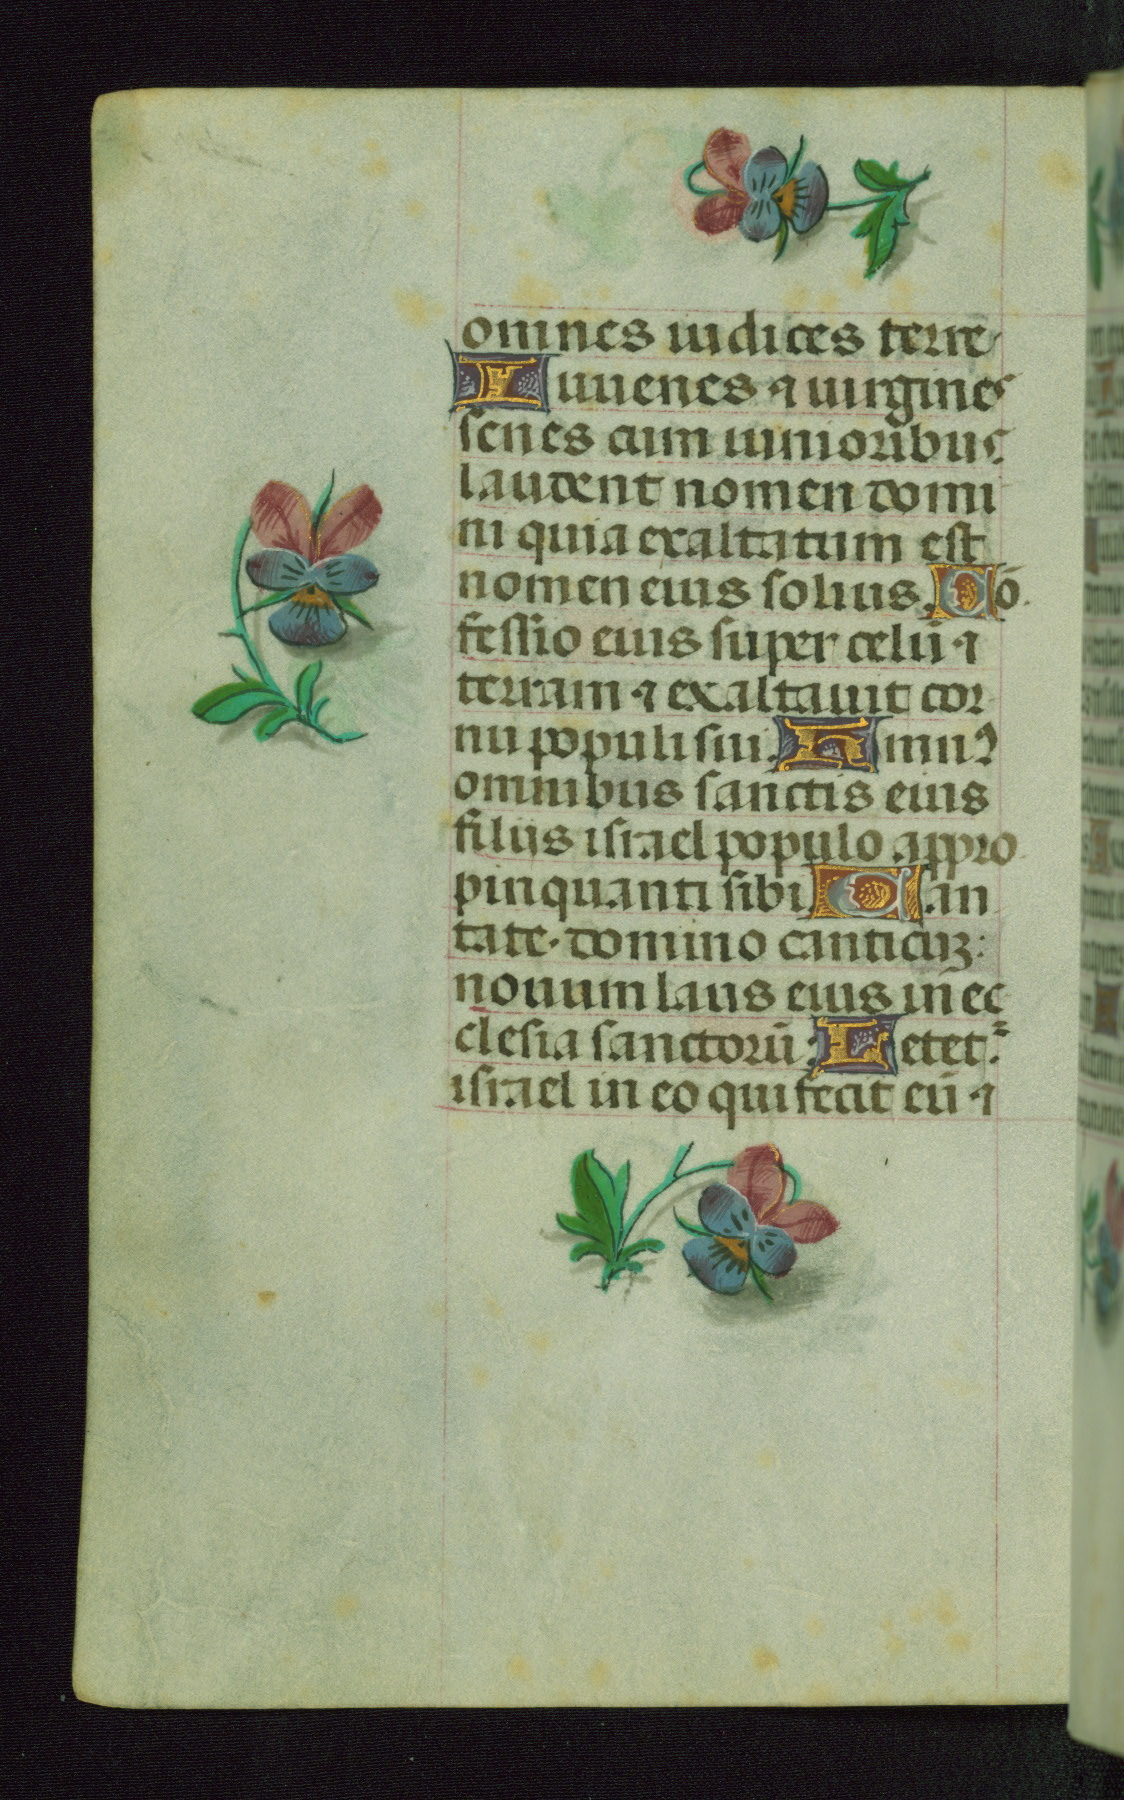 omnes iudices terre
Iuuenes ⁊ uirgines
senes cum iunioribus
laudent nomen domi
ni quia exaltatum est
nomen eius solius. Cō
fessio eius super celū ⁊
terram ⁊ exaltauit cor
nu populi sui. Himnꝰ
omnibus sanctis eius
filiis israel populo appro
pinquanti sibi Can
tate domino canticuꝫ
nouum laus eius in ec
clesia sanctorū: Letet᷑
israel in eo qui fecit eū ⁊